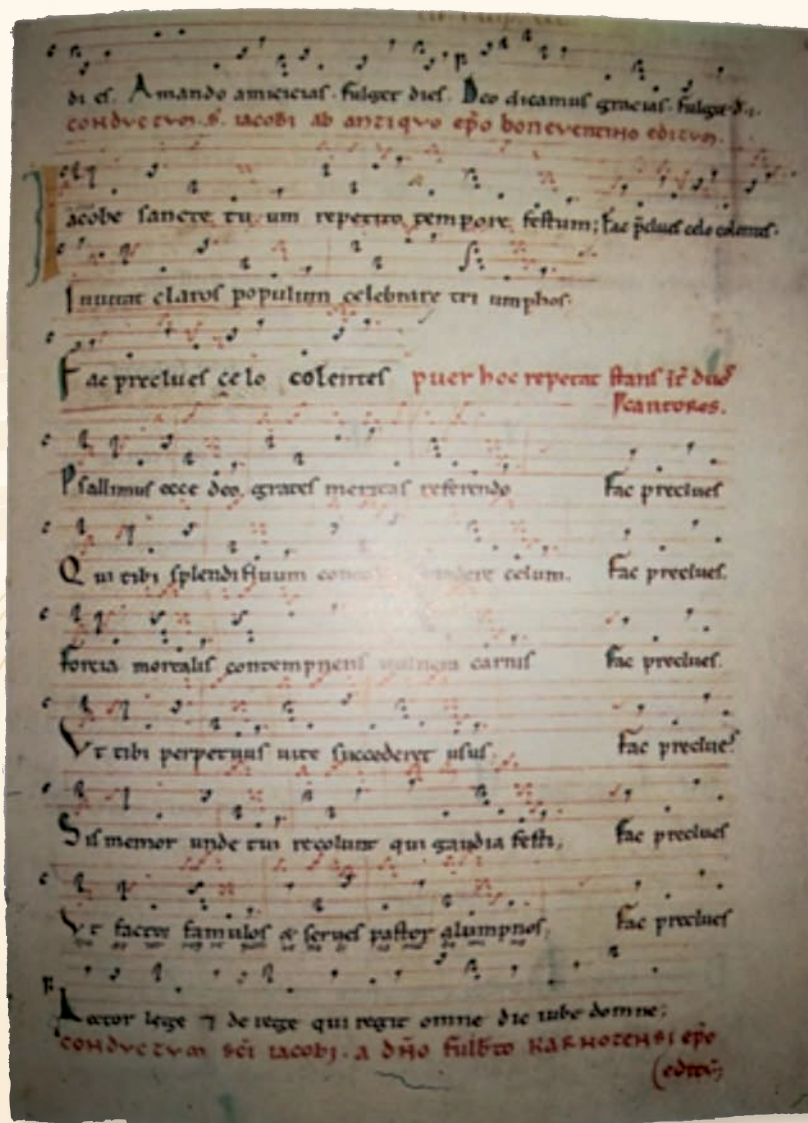 di es. Amando amicicias. fulget dies. Deo dicamus gracias. fulget d. i.
conductum .s. iacobi ab antiquo ep̃o boneventino editum.
Iacobe sancte tu um repetito tempore festum; fac p̃clues celo colentes.
Inuitat claros populum celebrare tri umphos.
Fac preclues ce lo colentes puer hoc repetat stans int̃ duos
cantores.
Psallimus ecce deo grates meritas referendo Fac preclues
Qui tibi splendifluum celum. Fac preclues.
Forcia mortalis contempnens carnis Fac preclues.
Vt tibi perpetuus uite succederet usus. Fac preclues
Sis memor unde tui recolunt qui gaudia festi; Fac preclues
Vt factos famulos & serues pastor alumpnos; Fac preclues
Lector lege ⁊ de rege qui regit omne dic iube domne;
conductum sc̃i iacobi. a dño fulb̃to karnotensi ep̃o
(editũ;